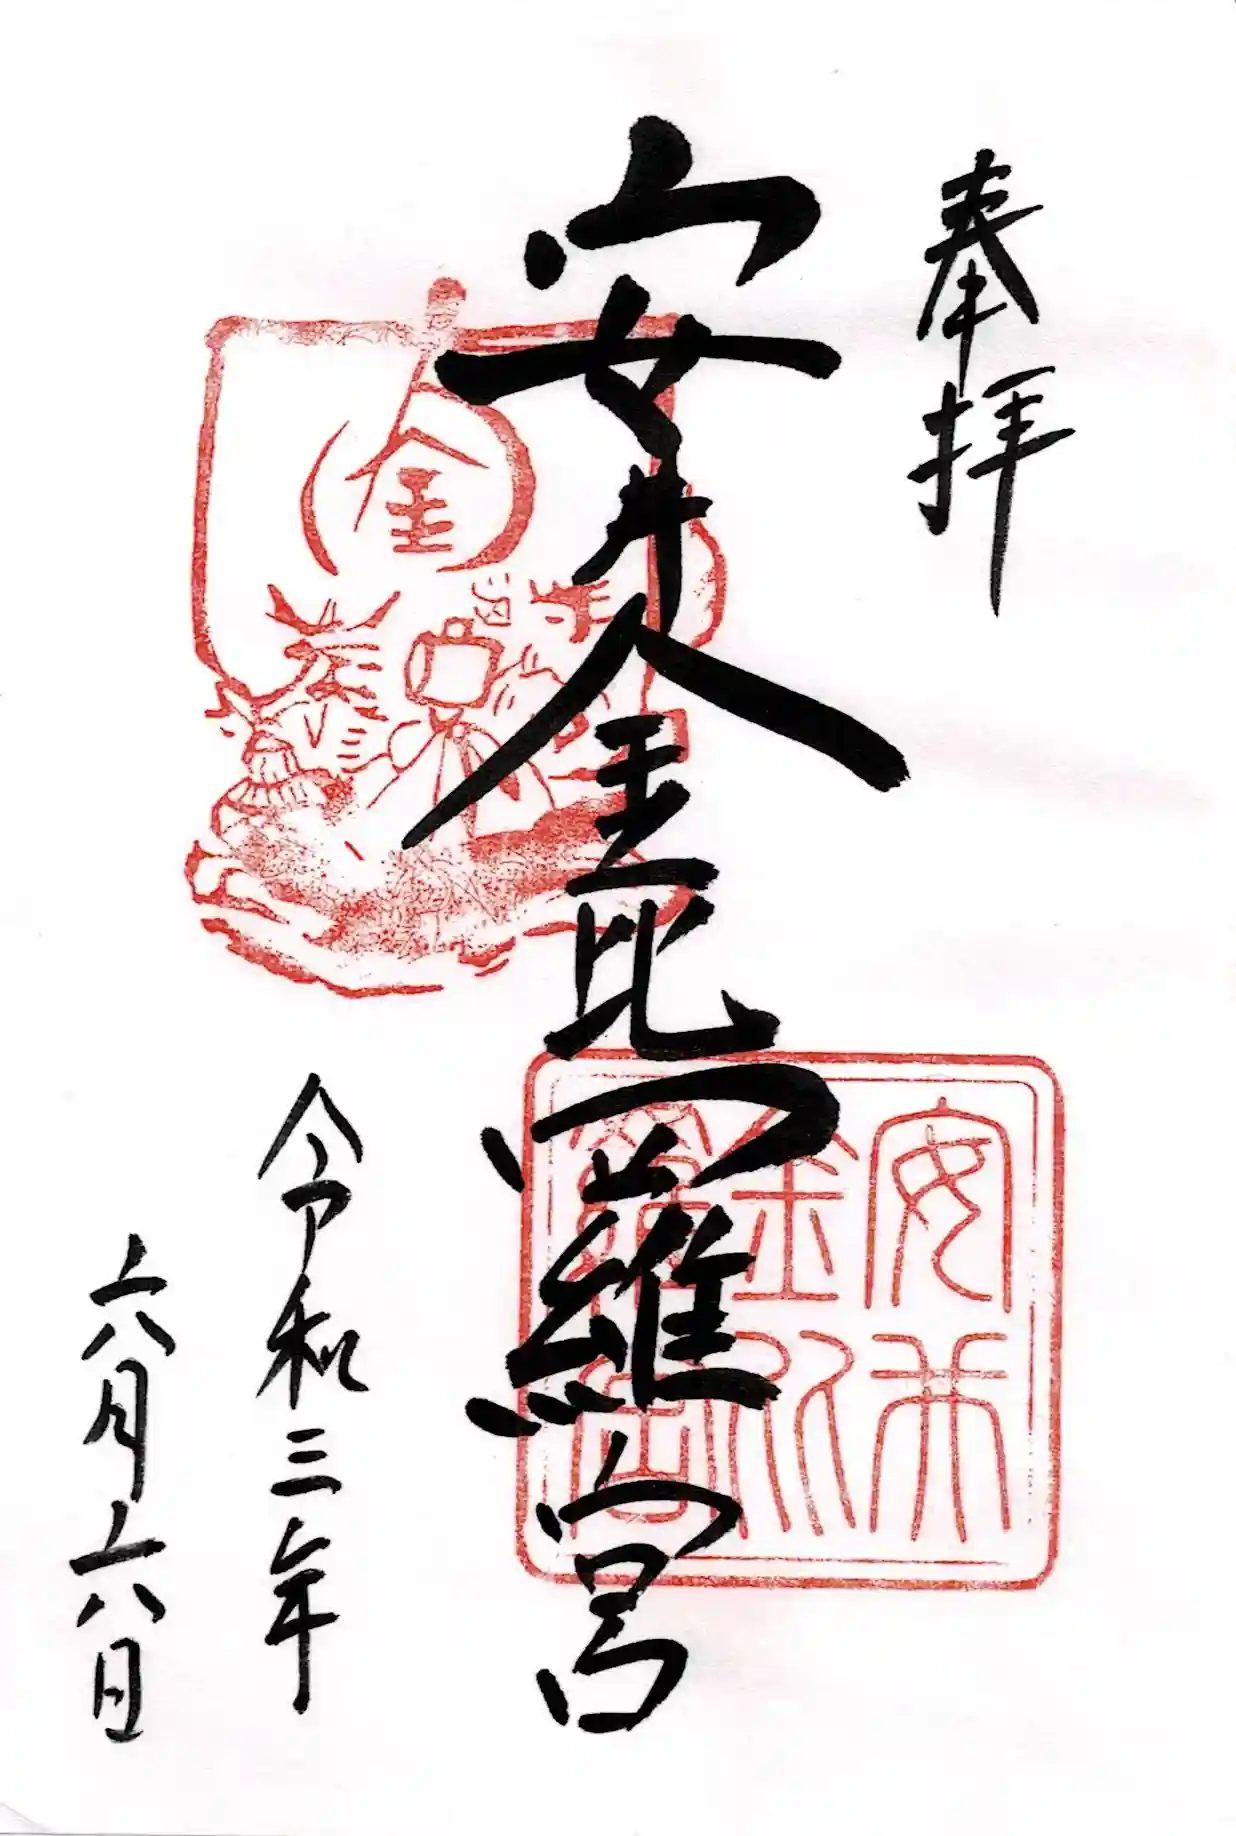 奉拝
安井金比羅宮
令和三年
六月六日
金
安井
金比
羅宮